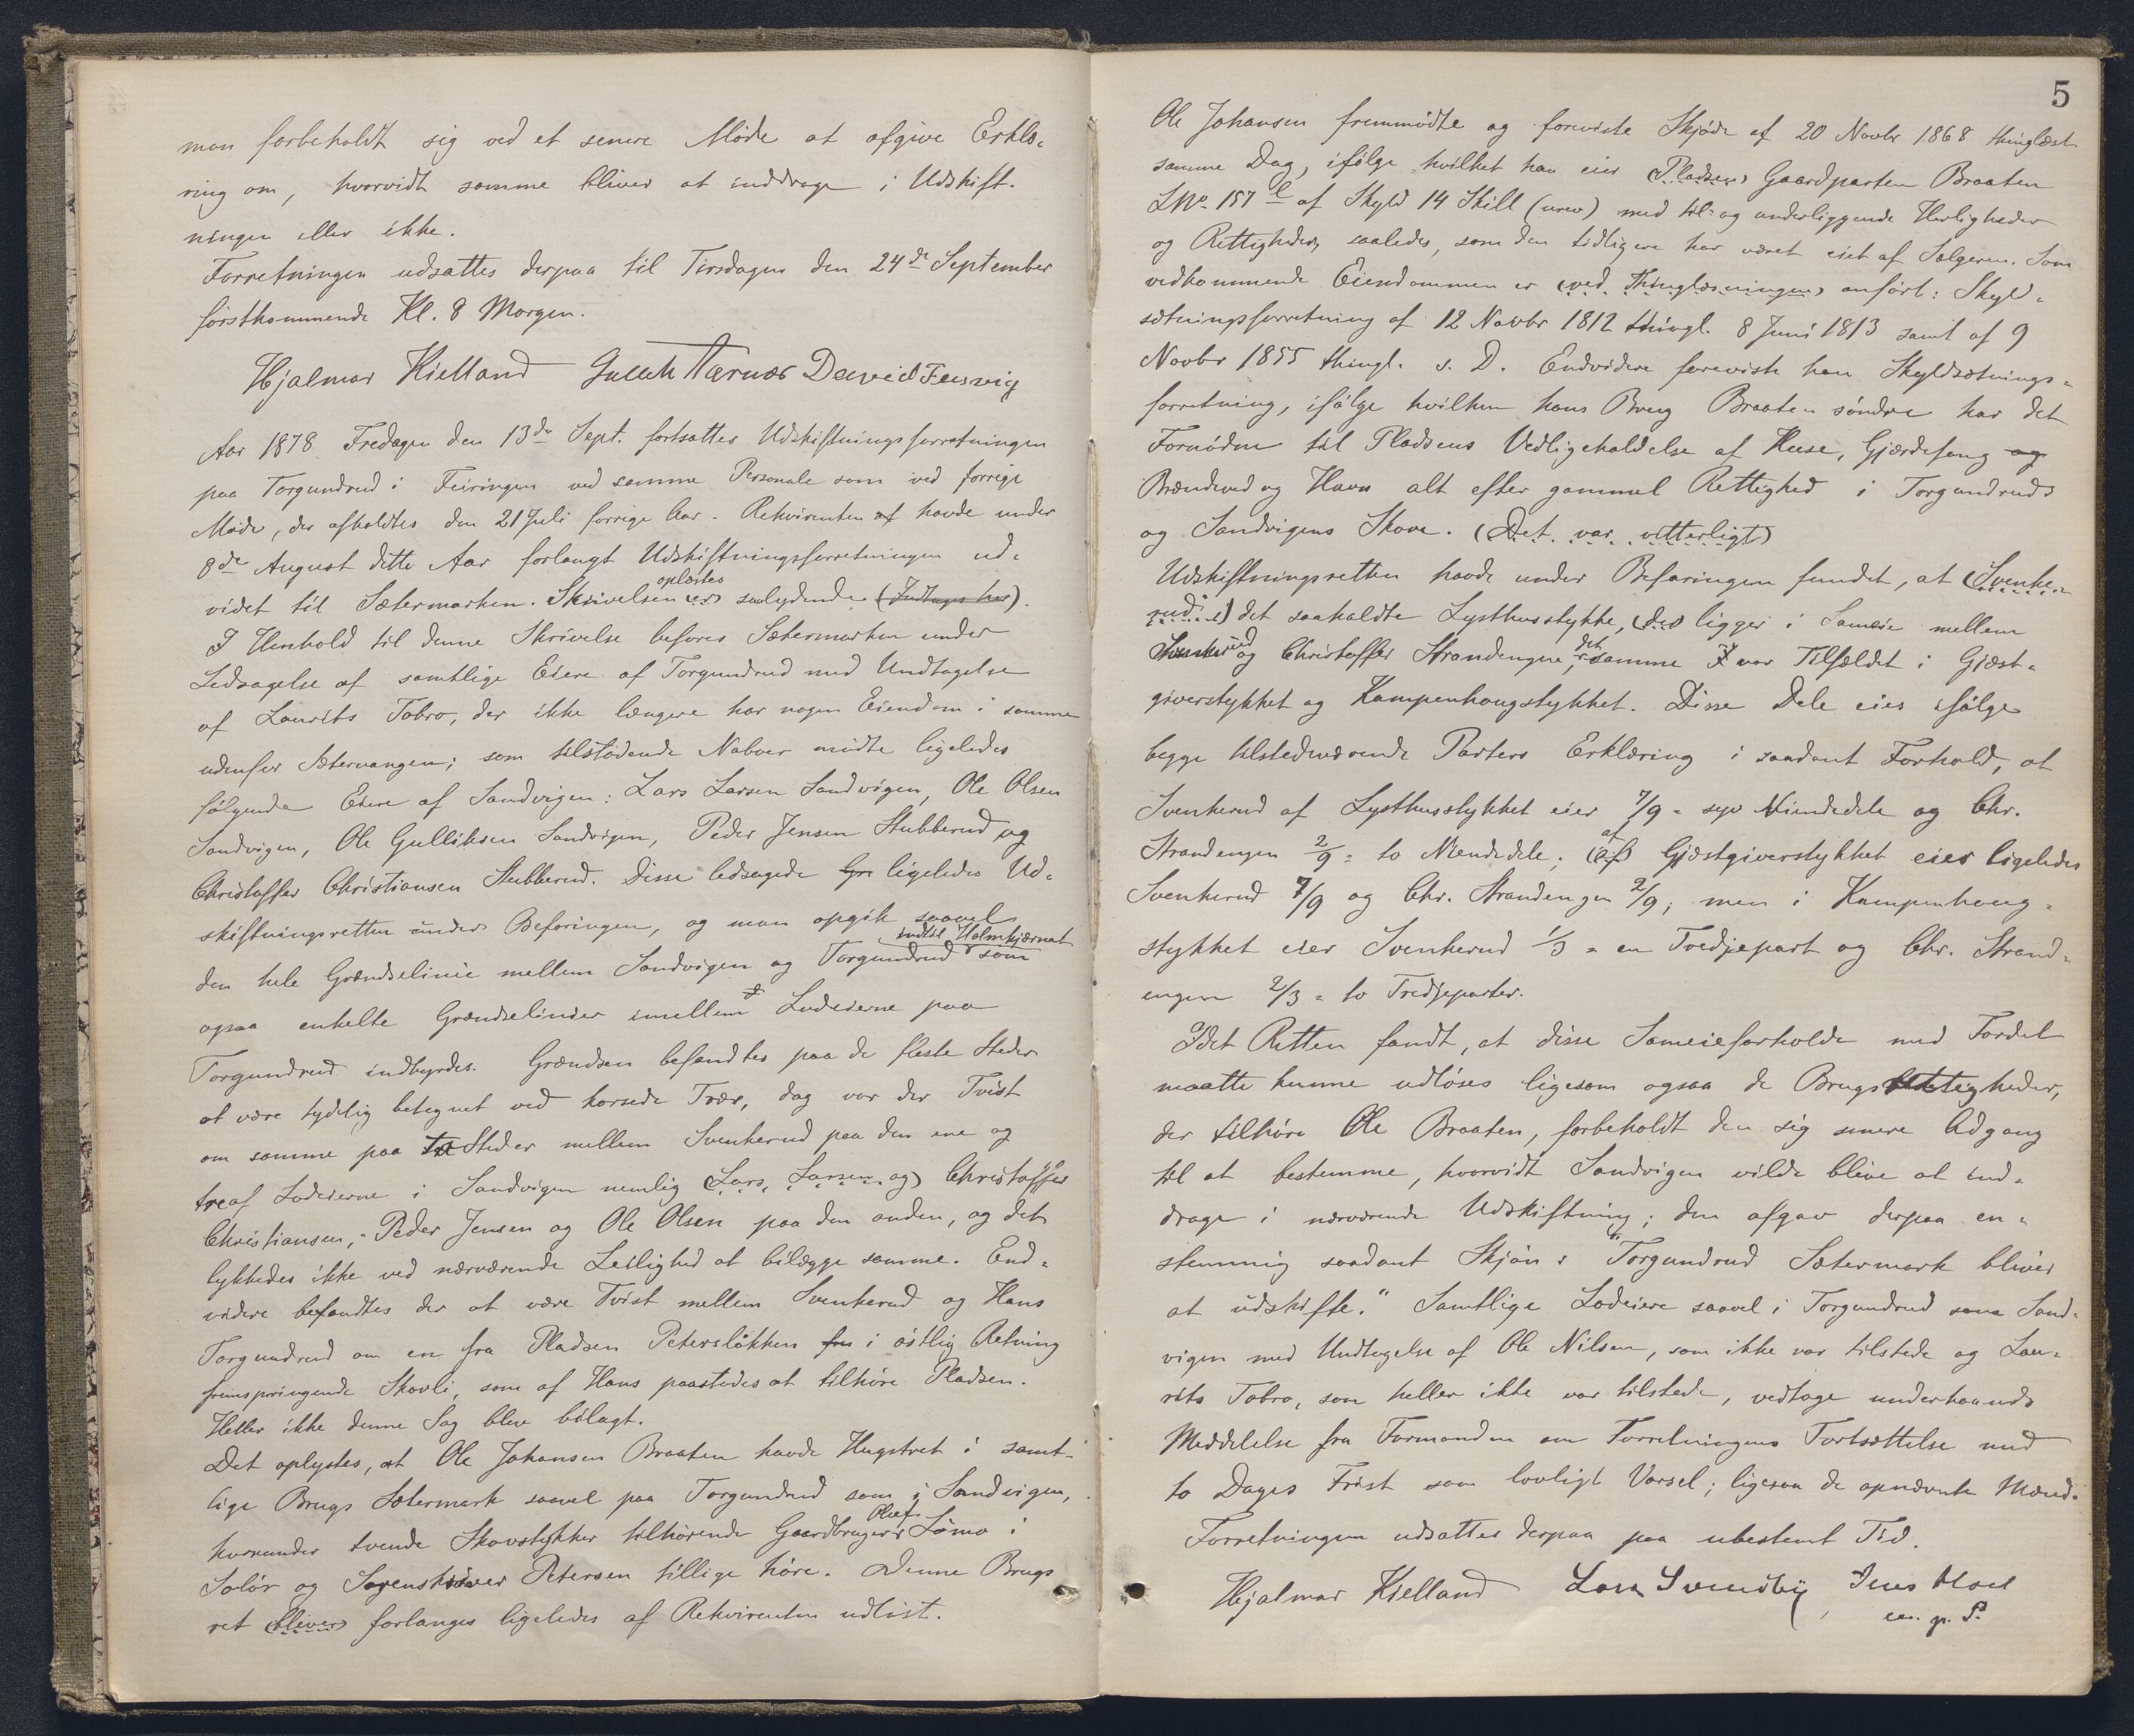 man forbeholdt sig ved et senere Møde at afgive Erklæ-
ring om, hvorvidt samme bliver at inddrage i Udskift-
ningen eller ikke.
Forretningen udsattes derpaa til Tirsdagen den 24de September
førstkommende Kl. 8 Morgen.
Hjalmar Kielland Gulek Tærnæs David Feiring
Aar 1878 Fredagen den 13de Sept. fortsattes Udskiftningsforretningen
paa Torgundrud i Feiringen ved samme Personale som ved forrige
Møde, der afholdtes den 21 Juli forrige Aar. Rekvirenten af havde under
8de August dette Aar forlangt Udskiftningsforretningen ud-
oplæstes
videt til Sætermarken. Skrivelsen (er) saalydende (Indtages her).
I Henhold til denne Skrivelse befores Sætermarken under
Ledsagelse af samtlige Eiere af Torgundrud med Undtagelse
af Laurits Tobro, der ikke længere har nogen Eiendom i samme
udenfor Sætervangen; som tilstødende Naboer mødte ligeledes
følgende Eiere af Sandvigen: Lars Larsen Sandvigen, Ole Olsen
Sandvigen, Ole Gulliksen Sandvigen, Peder Jensen Stubberud og
Christoffer Christiansen Stubberud. Disse ledsagede Gr ligeledes Ud-
skiftningsretten under Beforingen, og man opgik saavel
indtil Holmkjærnet
den hele Grændselinie mellem Sandvigen og Torgundrud som
ogsaa enkelte Grændselinier imellem Lodeierne paa
Torgundrud indbyrdes. Grændsen befandtes paa de fleste Steder
at være tydelig betegnet ved korsede Træer, dog var der Tvist
om samme paa to Steder mellem Svenkerud paa den ene og
tre af Lodeierne i Sandvigen nemlig (Lars Larsen og) Christoffer
Christiansen, Peder Jensen og Ole Olsen paa den anden, og det
lykkedes ikke ved nærværende Leilighed at bilægge samme. End-
videre befandtes der at være Tvist mellem Svenkerud og Hans
Torgundrud om en fra Pladsen Petersløkken fra i østlig Retning
fremspringende Skovli, som af Hans paastodes at tilhøre Pladsen.
Heller ikke denne Sag blev bilagt.
Det oplystes, at Ole Johansen Braaten havde Hugstret i samt-
lige Brugs Sætermark saavel paa Torgundrud som i Sandvigen,
Oluf
hvorunder tvende Skovstykker tilhørende Gaardbruger Lømo i
Solør og Sagenskriver Petersen tillige høre. Denne Brugs-
ret (bliver) forlanges ligeledes af Rekvirenten udløst.
5
Ole Johansen fremmødte og foreviste Skjøde af 20 Novbr 1868 thinglæst
samme Dag, ifølge hvilket han eier (Pladsen) Gaardparten Braaten
LNo 157 c af Skyld 14 Skill (urev) med til- og underliggende Herligheder
og Rettigheder, saaledes, som den tidligere har været eiet af Sælgeren. Som
vedkommende Eiendommen er (ved Thinglæsningen) anført: Skyld-
sætningsforretning af 12 Novbr 1812 thingl. 8 Juni 1813 samt af 9
Novbr 1855 thingl. s. D. Endvidere foreviste han Skyldsætnings-
forretning, ifølge hvilken hans Brug Braaten søndre har det
Fornødne til Pladsens Vedligeholdelse af Huse, Gjærdefang og
Brændeved og Havn alt efter gammel Rettighed i Torgundruds
og Sandvigens Skove. (Det var vitterligt)
Udskiftningsretten havde under Befaringen fundet, at (Svenke-
rud i) det saakaldte Lysthusstykke, (der) ligger i Sameie mellem
Svenkerud og Christoffer Strandengen, det samme var Tilfældet i Gjæst-
giverstykket og Kampenhougstykket. Disse Dele eies ifølge
begge tilstedeværende Parters Erklæring i saadant Forhold, at
Svenkerud af Lysthusstykket eier 7/9 = syv Niendedele og Chr.
Strandengen 2/9 = to Niendedele; (af) af Gjæstgiverstykket eier ligeledes
Svenkerud 7/9 og Chr. Strandengen 2/9; men i Kampenhoug-
stykket eier Svenkerud 1/3 = en Tredjepart og Chr. Strand-
engen 2/3 = to Tredjeparter.
Idet Retten fandt, at disse Sameieforholde med Fordel
maatte kunne udløses ligesom ogsaa de Brugsrettigheder,
der tilhøre Ole Braaten, forbeholdt den sig senere Adgang
til at bestemme, hvorvidt Sandvigen vilde blive at ind-
drage i nærværende Udskiftning; den afgav derpaa en-
stemmig saadant Skjøn: "Torgundrud Sætermark bliver
at udskifte." Samtlige Lodeiere saavel i Torgundrud som Sand-
vigen med Undtagelse af Ole Nilsen, som ikke var tilstede og Lau-
rits Tobro, som heller ikke var tilstede, vedtoge underhaands
Meddelelse fra Formanden om Forretningens Fortsættelse med
to Dages Frist som lovligt Varsel; ligesaa de opnævnte Mænd.
Forretningen udsattes derpaa paa ubestemt Tid.
Hjalmar Kielland Lars Svendby Jens Hoel
m. p. P.